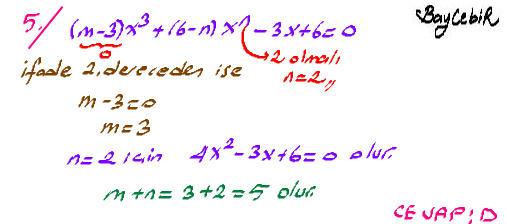 BayCebiR
5/ (m-3)x³+(6-n)xⁿ-3x+6=0
0
2 olmalı
ifade 2.dereceden ise
n=2,,
m-3=0
m=3
n=2 için 4x²-3x+6=0 olur.
m+n=3+2=5 olur.
CEVAP:D